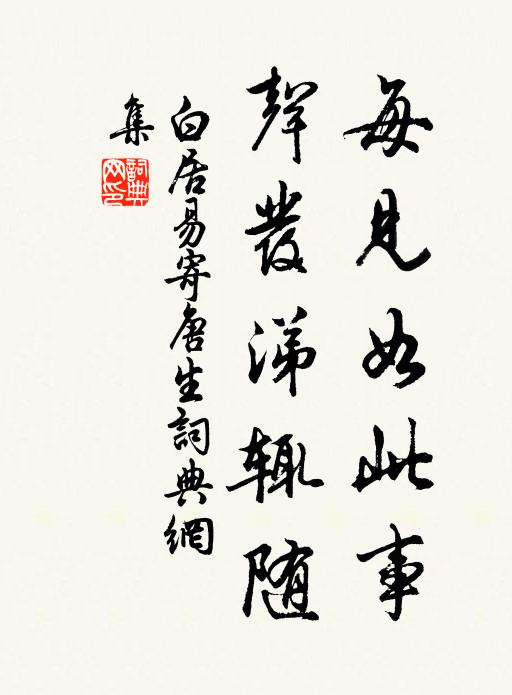 每見如此事
聲發涕輒随
白居易寄唐生詞典網
集
詞典網印